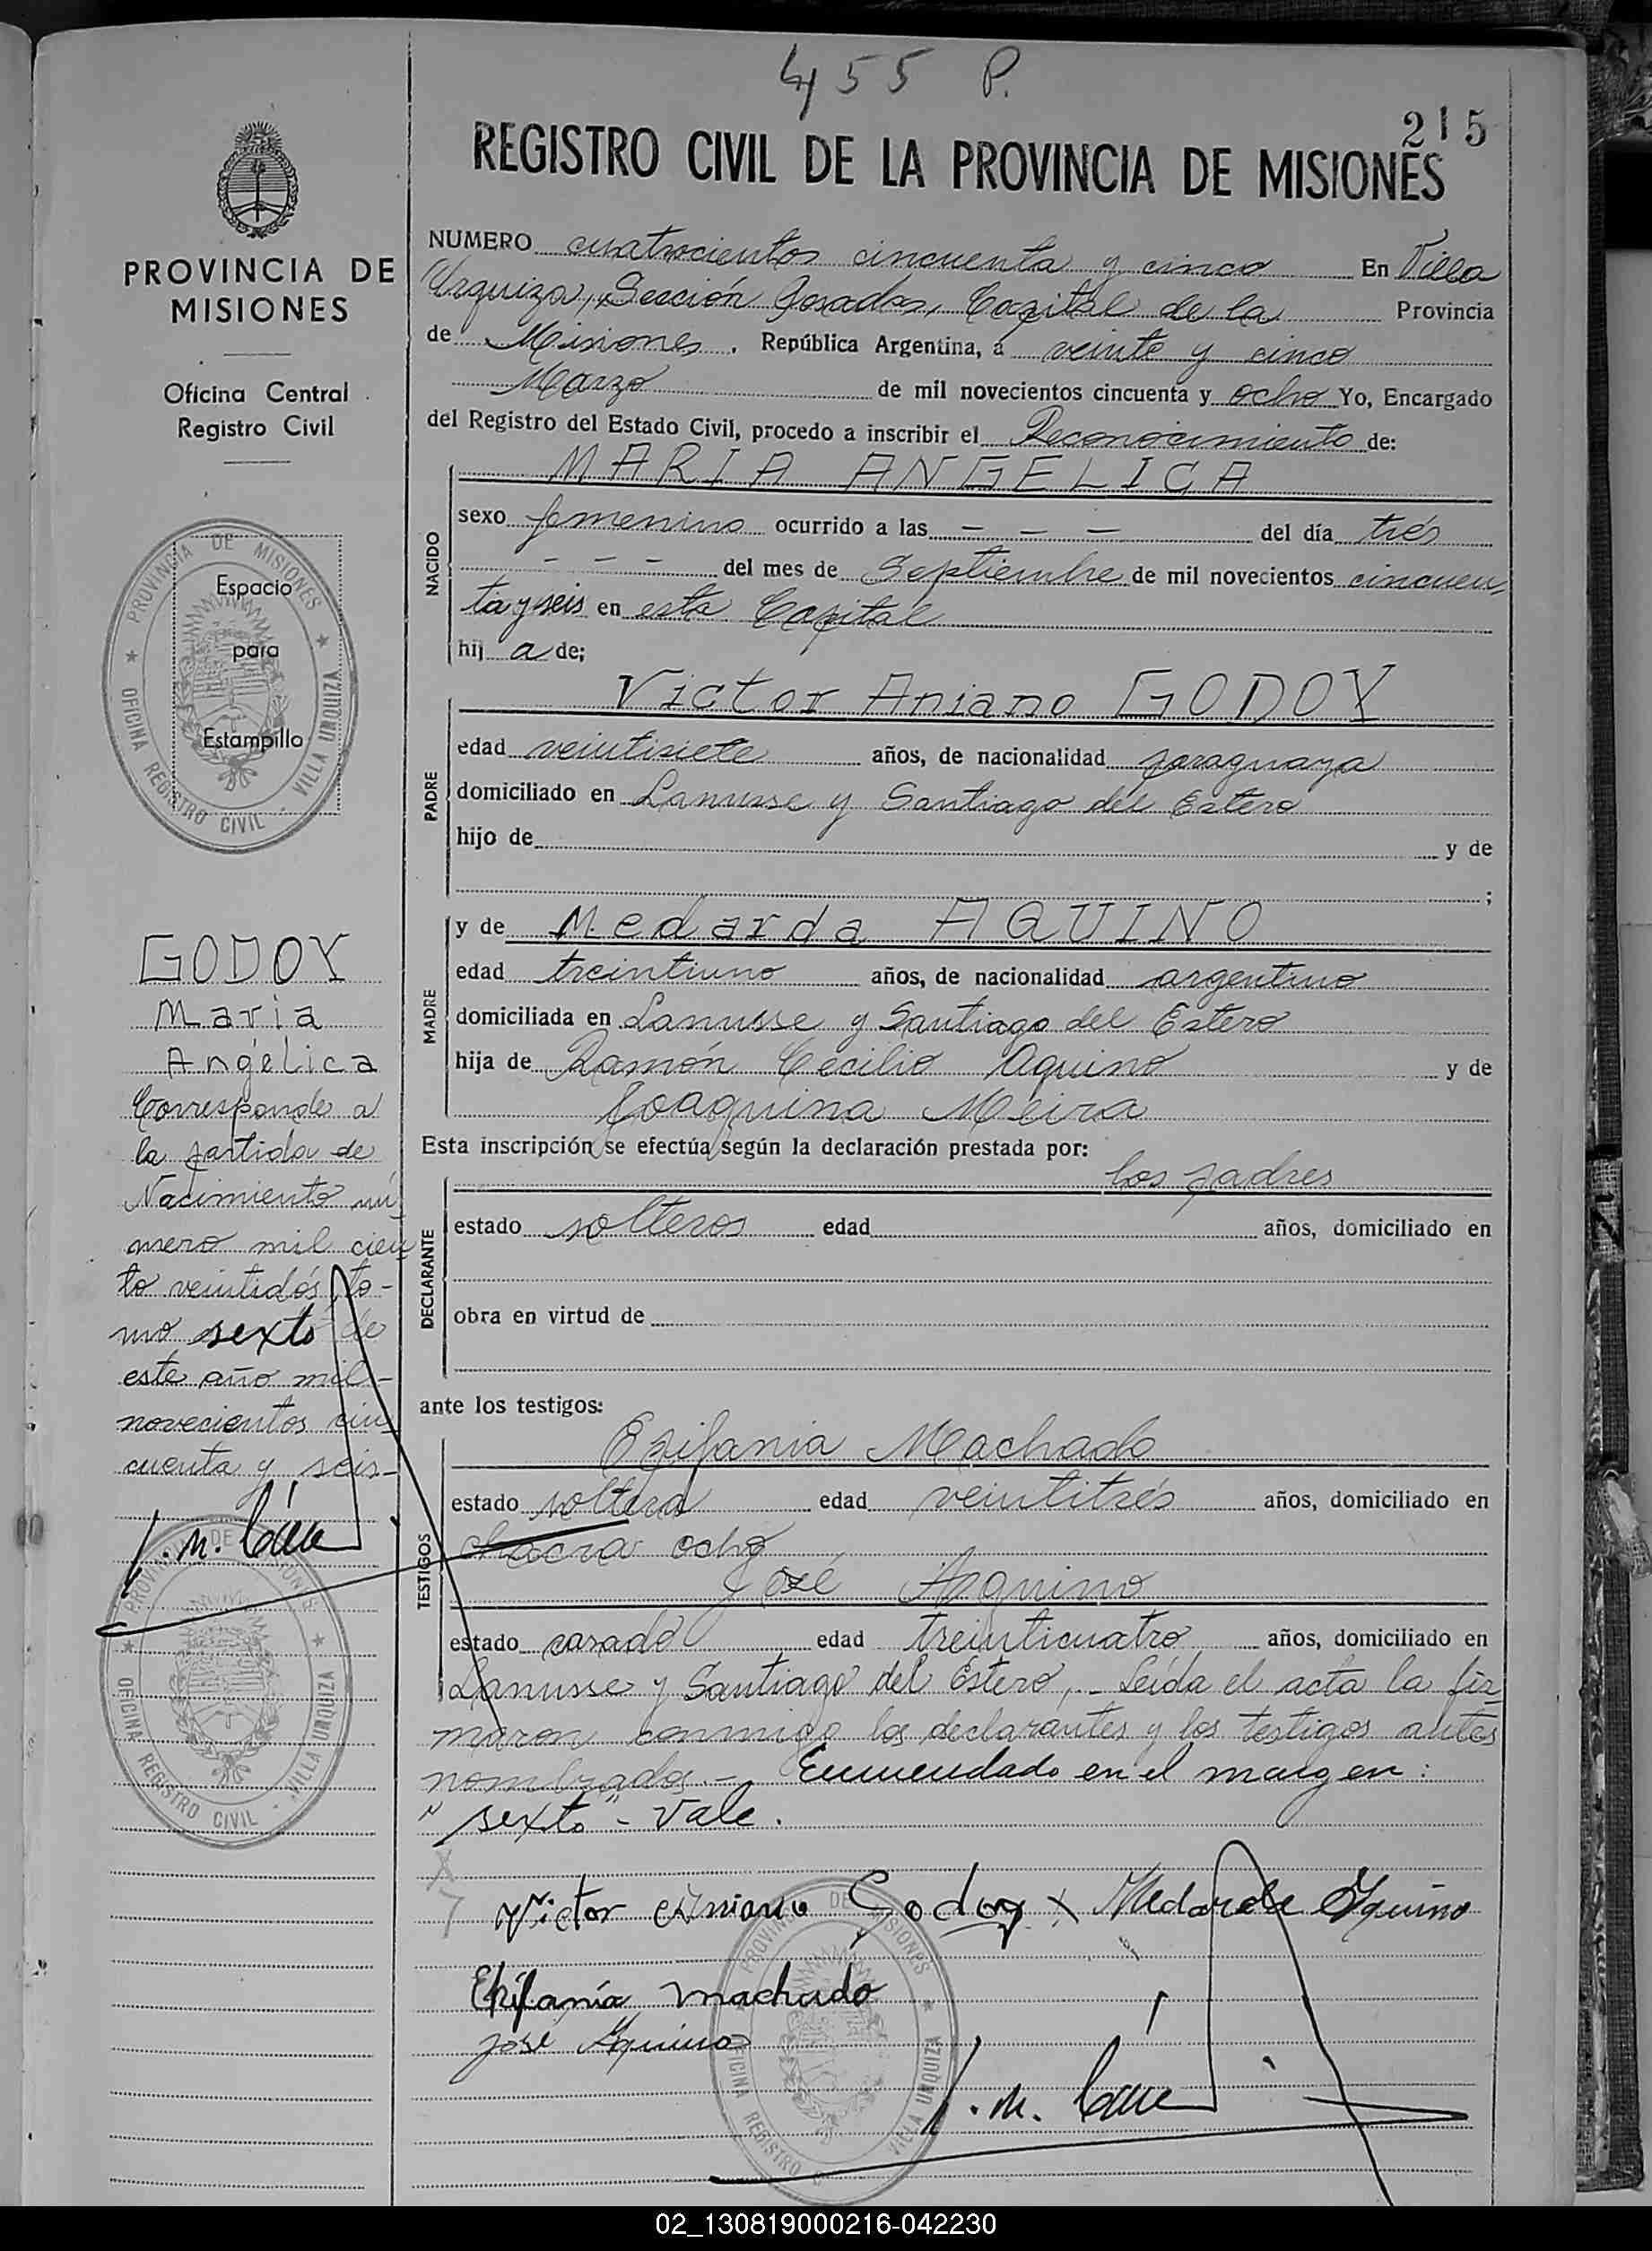 455 P.
215
REGISTRO CIVIL DE LA PROVINCIA DE MISIONES
PROVINCIA DE
MISIONES
Oficina Central
Registro Civil
PROVINCIA DE MISIONES
OFICINA REGISTRO CIVIL - VILLA URQUIZA
Espacio
para
Estampillo
GODOY
Maria
Angélica
Corresponde a
la partida de
Nacimiento nú
mero mil cien
to veintidós, to-
mo sexto de
este año mil-
novecientos cin
cuenta y seis-
PROVINCIA DE MISIONES
OFICINA REGISTRO CIVIL - VILLA URQUIZA
NUMERO cuatrocientos cincuenta y cinco En Villa
Urquiza, Sección Posadas, Capital de la Provincia
de Misiones. República Argentina, a veinte y cinco
Marzo de mil novecientos cincuenta y ocho Yo, Encargado
del Registro del Estado Civil, procedo a inscribir el Reconocimiento de:
NACIDO
MARIA ANGELICA
sexo femenino ocurrido a las — — — del día trés
- - - del mes de Septiembre de mil novecientos cincuen
ta y seis en esta Capital
hij a de;
PADRE
Victor Aniano GODOY
edad veintisiete años, de nacionalidad paraguaya
domiciliado en Lanusse y Santiago del Estero
hijo de y de
;
MADRE
y de Medarda AQUINO
edad treintiuno años, de nacionalidad argentino
domiciliada en Lanusse y Santiago del Estero
hija de Ramón Cecilio Aquino y de
Joaquina Meira
Esta inscripción se efectúa según la declaración prestada por:
DECLARANTE
los padres
estado solteros edad años, domiciliado en
obra en virtud de
ante los testigos:
TESTIGOS
Epifania Machado
estado soltera edad veintitrés años, domiciliado en
chacra ocho
José Aquino
estado casado edad treinticuatro años, domiciliado en
Lanusse y Santiago del Estero,- Leída el acta la fir-
maron conmigo los declarantes y los testigos antes
nombrados.- Enmendado en el margen:
"sexto" - Vale.
Victor Aniano Godoy x Medarda Aquino
Epifania machado
josé Aquino
PROVINCIA DE MISIONES
OFICINA REGISTRO CIVIL VILLA URQUIZA
02_130819000216-042230